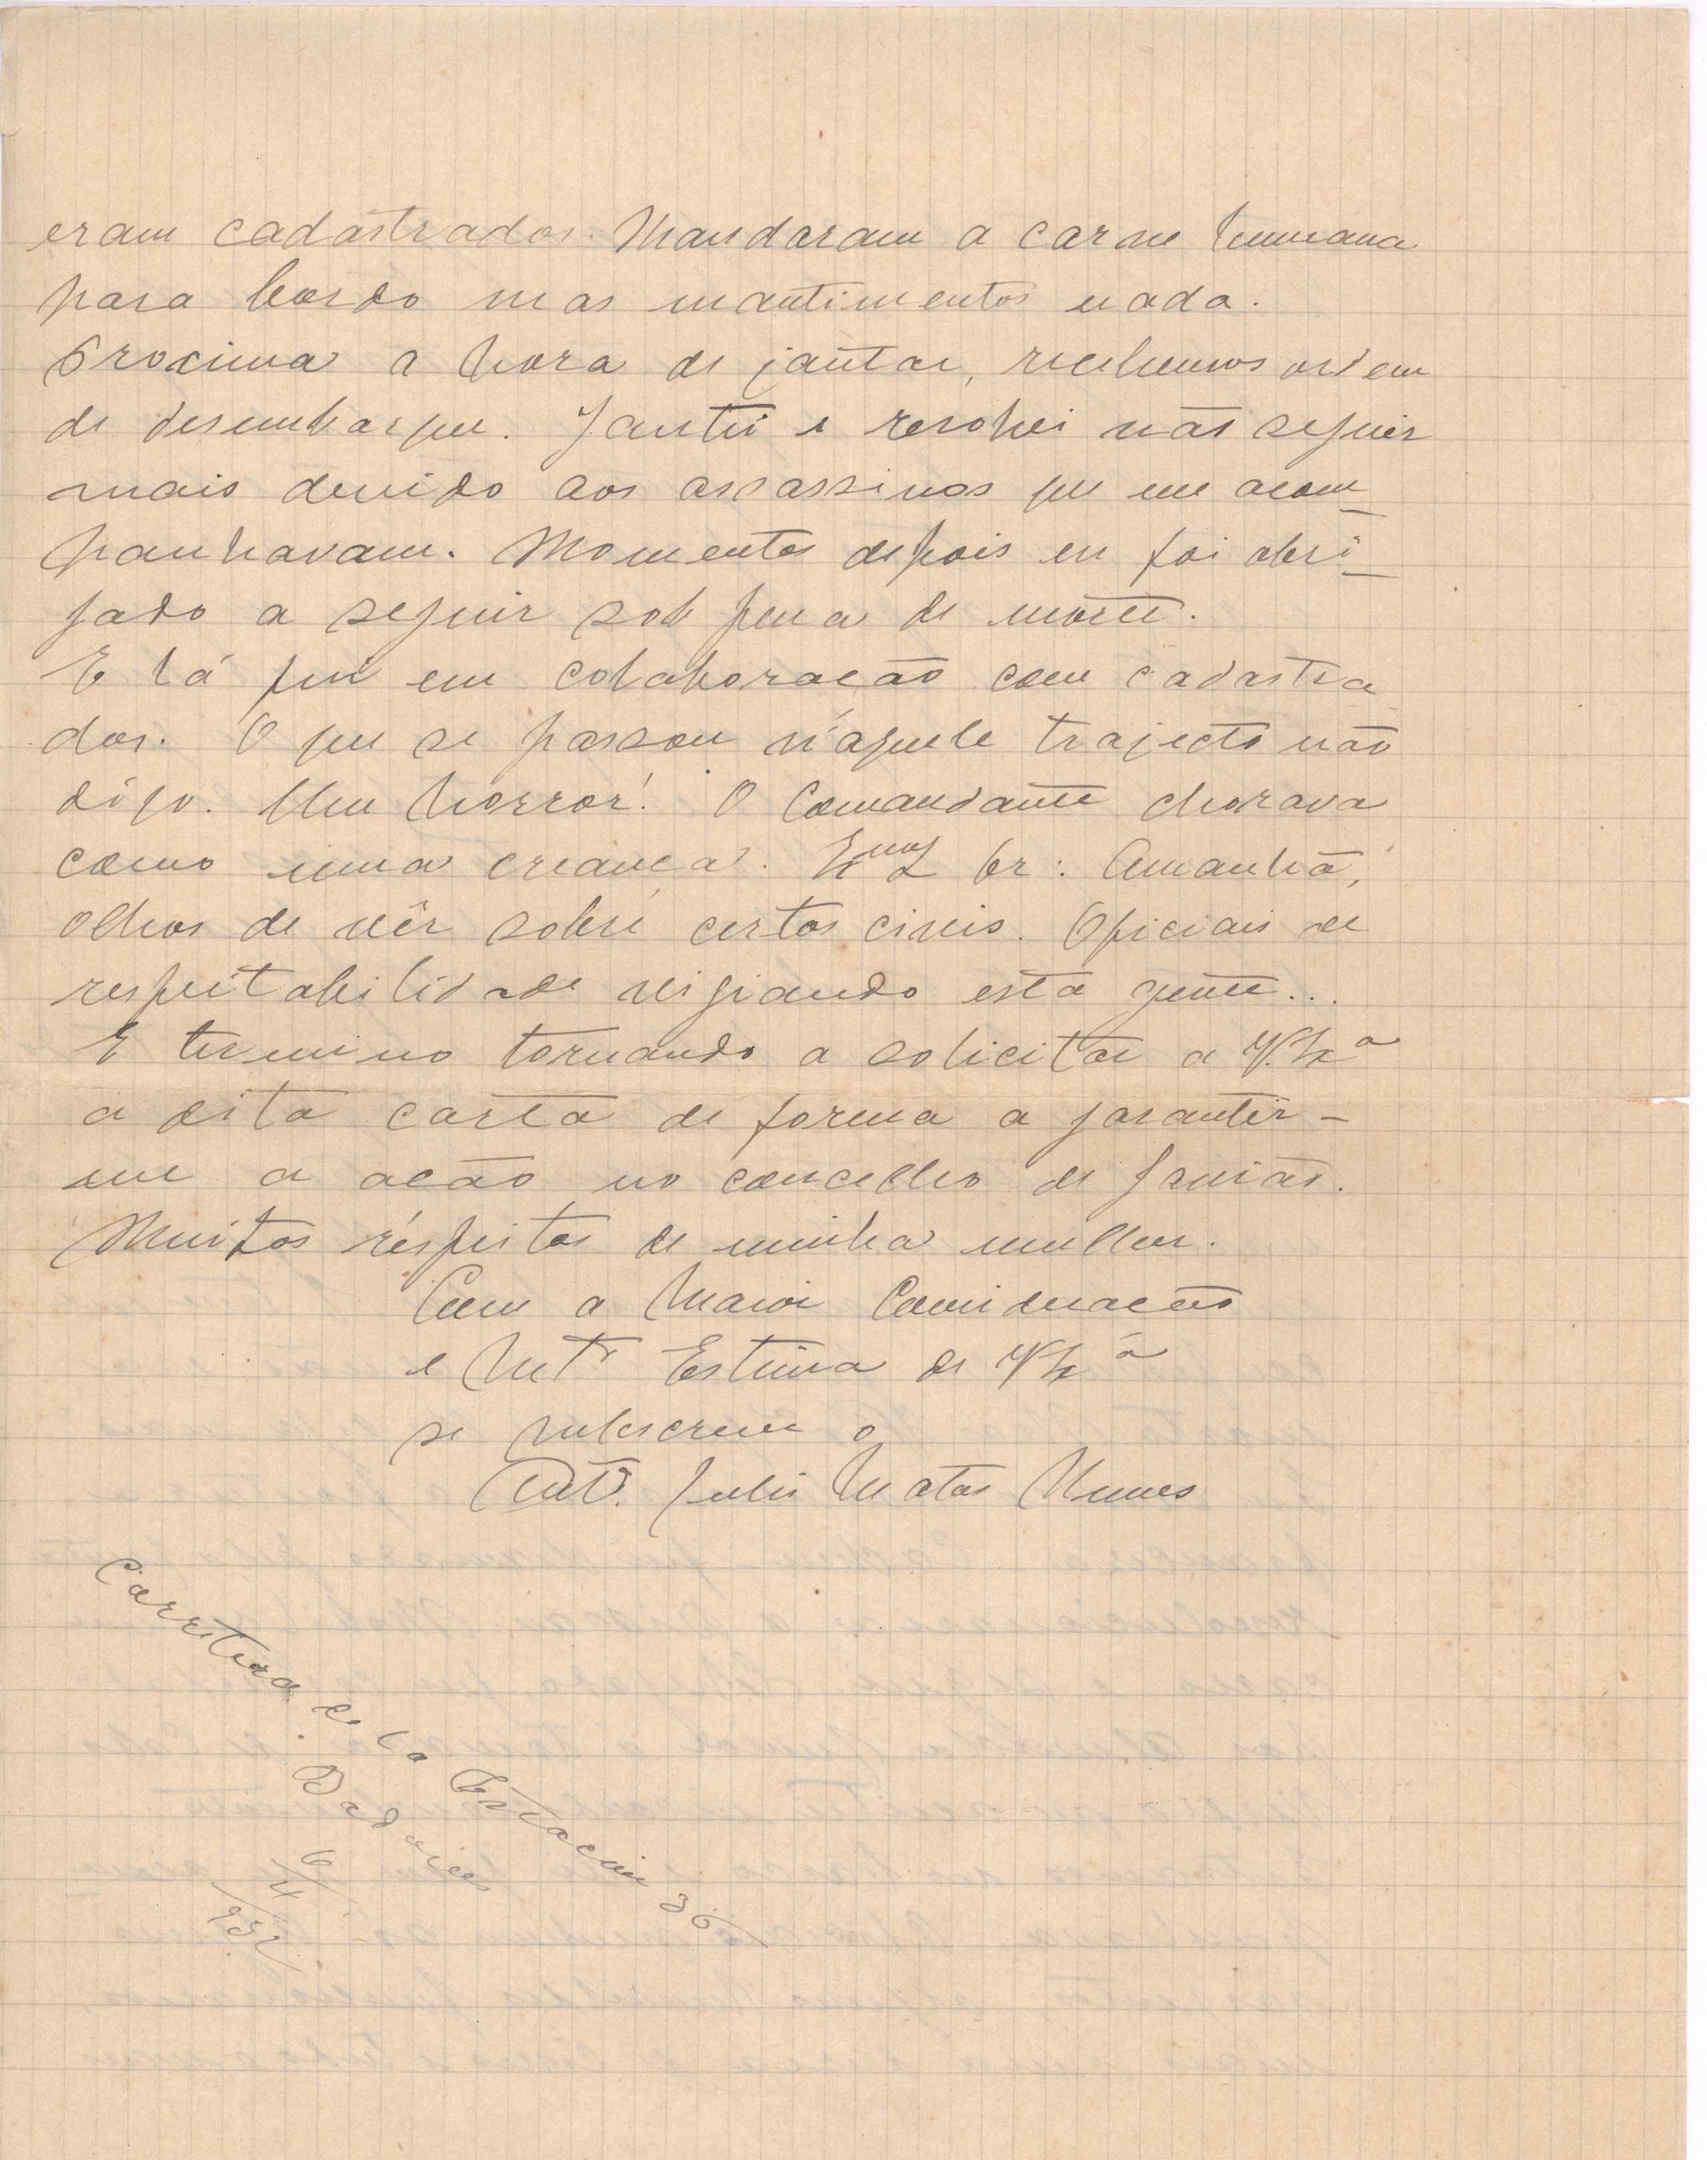 eram cadastrados. Mandaram a carne humana
para bordo mas mantimentos nada.
Proxima a hora de jantar, recebemos ordem
de desembarque. Jantei e resolvi não seguir
mais devido aos assassinos que me acom_
panhavam. Momentos depois eu foi obri_
gado a seguir sob pena de morte.
E lá fui em colaboração com cadastra
dos. O que se passou n'aquele trajecto não
digo. Um horror! O Comandante chorava
como uma creança. Exmo Sr: Amanhã,
olhos de vêr sobre certos civis. Oficiais de
respeitabilidade vigiando esta gente...
E termino tornando a solicitar a V. Exa
a dita carta de forma a garantir-
me a acão no concelho de Gavião.
Muitos respeitos de minha mulher.
Com a Maior Consideração
e Mta Estima de V Exa
se subscreve o
Anto. Julio Matos Nunes
Carretera de la Estacion 36
Badajoz
6/4/931